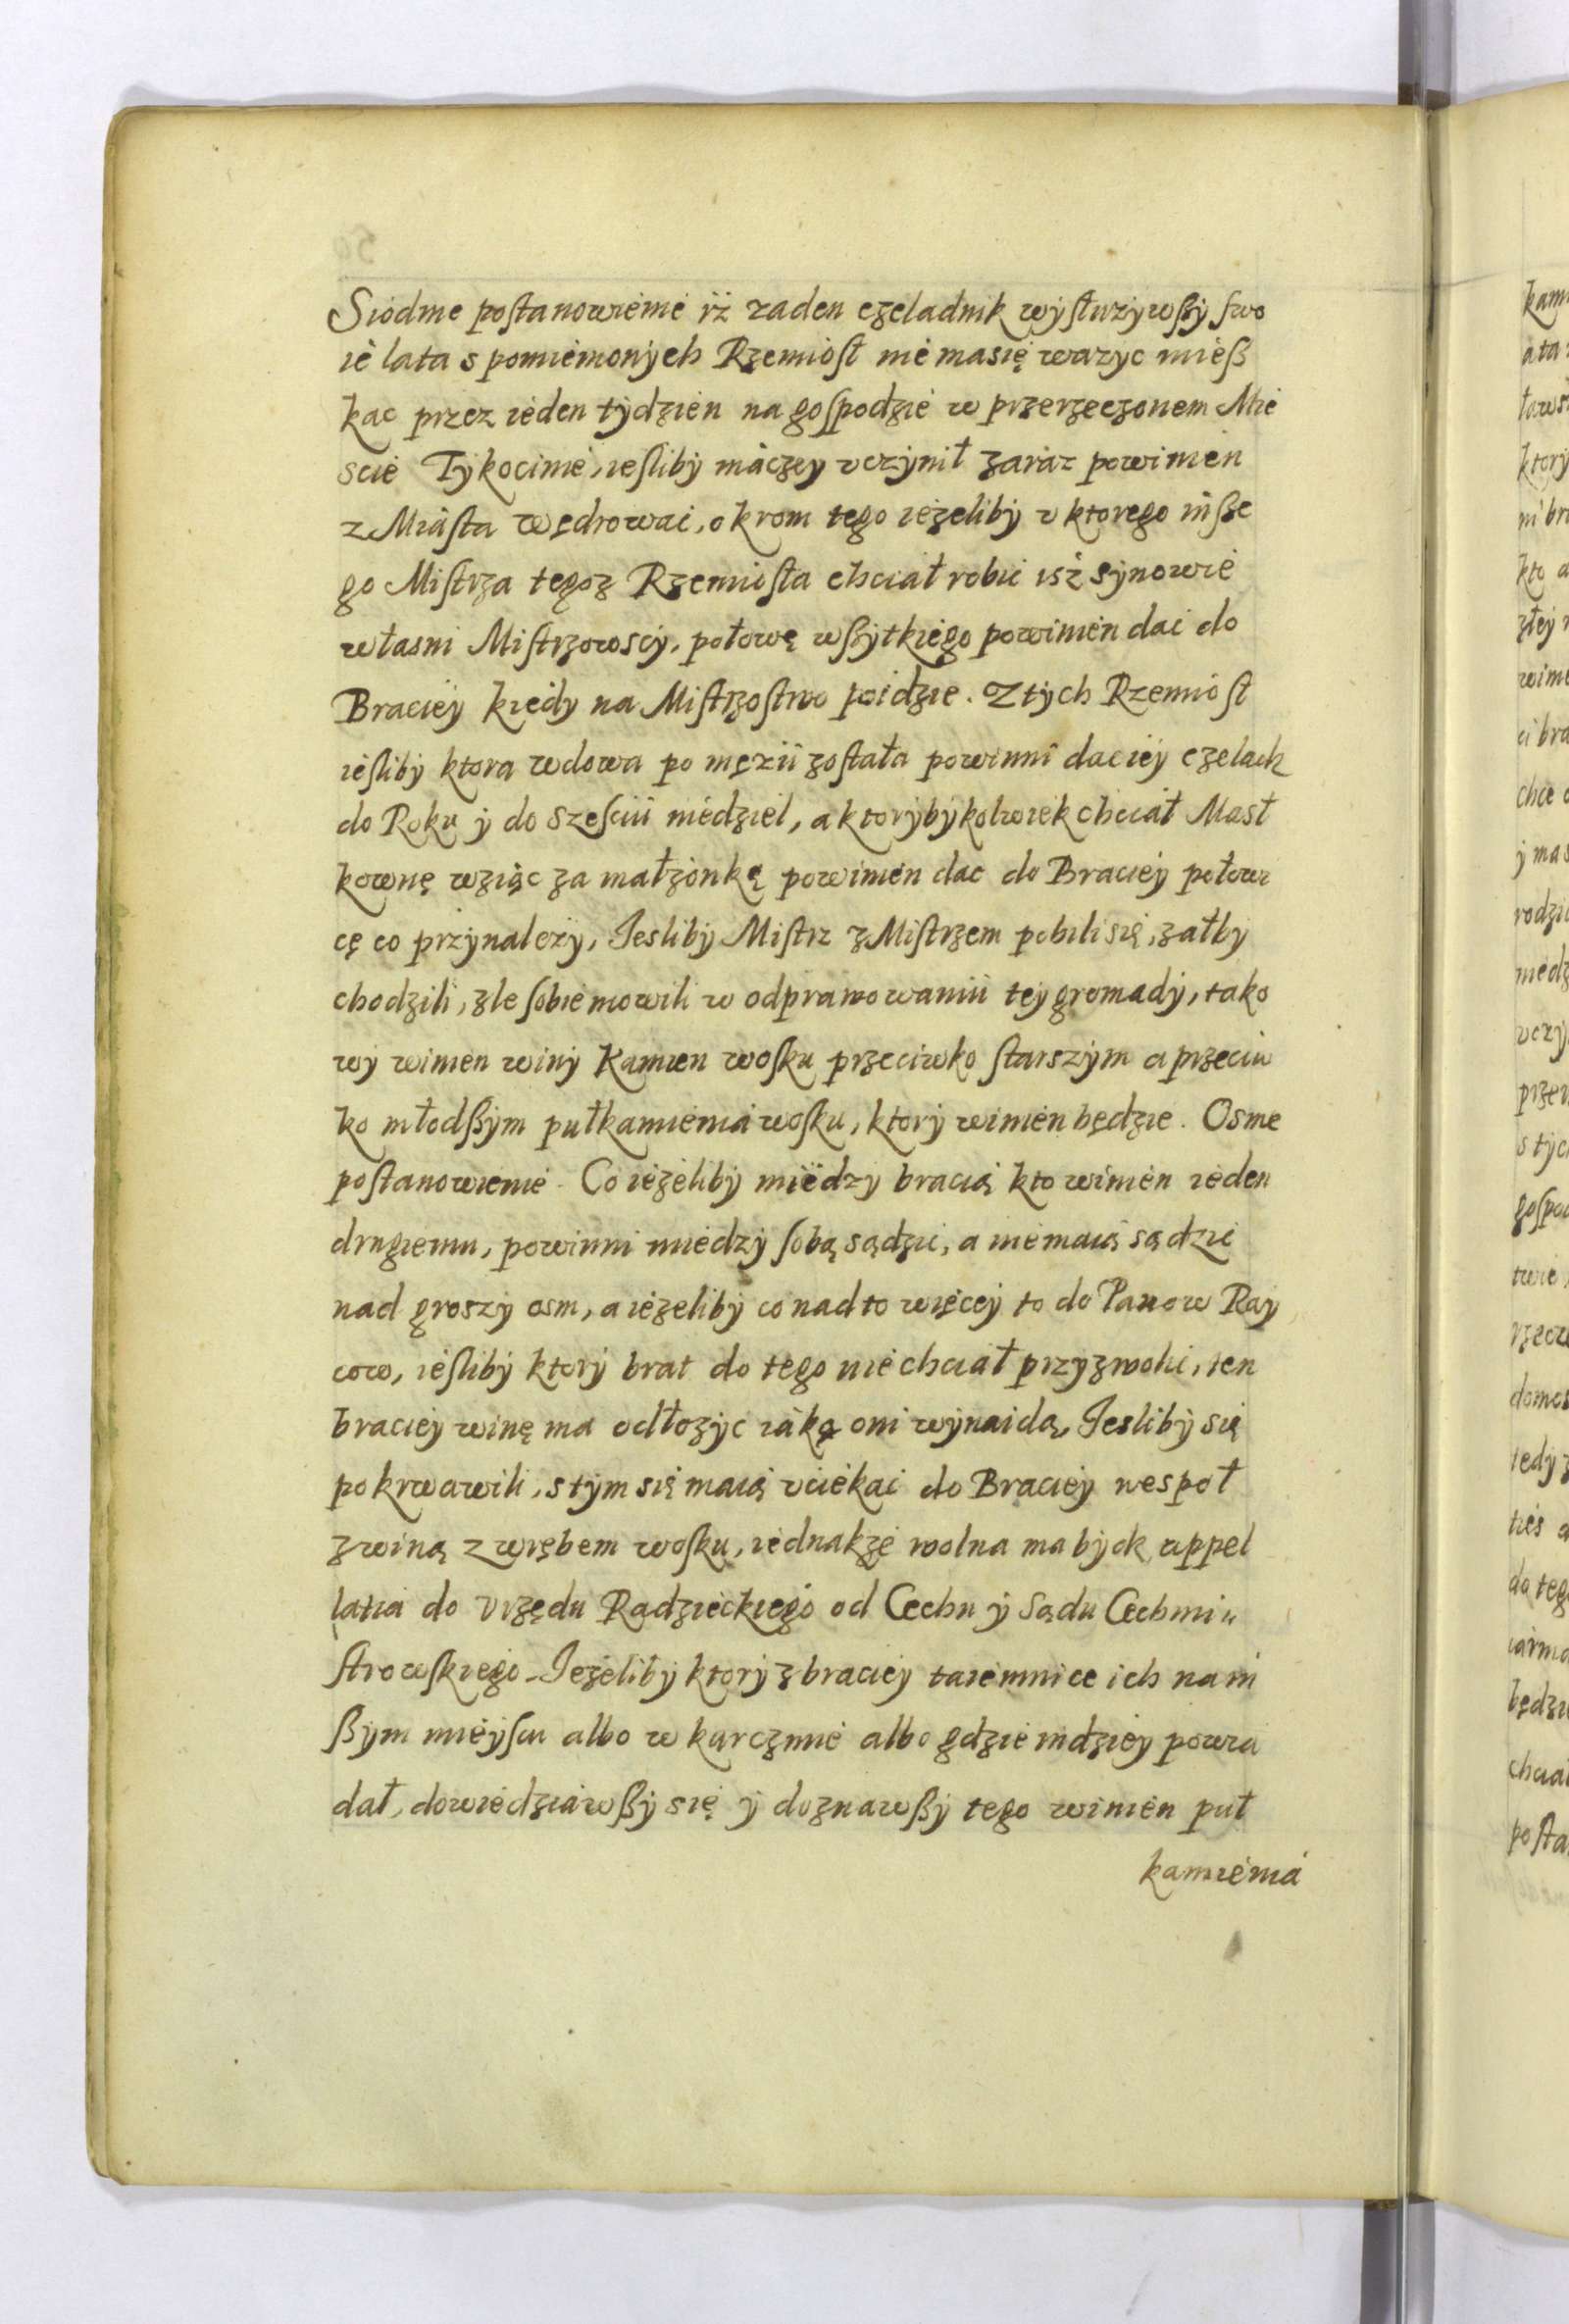 Siodme postanowienie iż zaden czeladnik wysłuzywszy swo
ie lata s pomienionych Rzemiosł nie ma się wazyc miesz
kac przez ieden tydzien na gospodzie w przerzeczonem Mie
scie Tykocinie, iesliby inaczey vczynił zaraz powinien
z Miasta wędrowac, okrom tego iezeliby v ktorego insze
go Mistrza tegoz Rzemiosła chciał robic isz synowie
własni Mistrzowscy, połowę wszytkiego powinien dac do
Braciey kiedy na Mistrzostwo poidzie. Z tych Rzemiosł
iesliby ktora wdowa po męzu została powinni dac iey czeladz
do Roku y do szesciu niedziel, a ktorybykolwiek chciał Mast
kownę wziąc za małzonkę powinien dac do Braciey połowi
cę co przynalezy, Iesliby Mistrz z Mistrzem pobili się, za łby
chodzili, zle sobie mowili w odprawowaniu tey gromady, tako
wy winien winy Kamien wosku przeciwko starszym a przeciw
ko młodszym puł kamienia wosku, ktory winien będzie. Osme
postanowienie. Co iezeliby miedzy bracią kto winien ieden
drugiemu, powinni miedzy sobą sądzic, a nie maią sądzic
nad groszy osm, a iezeliby co nad to więcey to do Panow Ray
cow, iesliby ktory brat do tego nie chciał przyzwolic, ten
braciey winę ma odłozyc iaką oni wynaidą, Iesliby się
pokrwawili, s tym się maią vciekac do Braciey wespoł
z winą z wrębem wosku, iednakze wolna ma bydz appel
latia do vrzędu Radzieckiego od Cechu y sądu Cechmi
strowskiego. Iezeliby ktory z braciey taiemnice ich na in
szym mieyscu albo w karczmie albo gdzie indziey powia
dał, dowiedziawszy się y doznawszy tego winien puł
kamienia
kam
a ta
ktory
kto a
złey
chce
y mas
rodzi
vczy
s tyc
gospo
tedy
będzi
chcia
posta